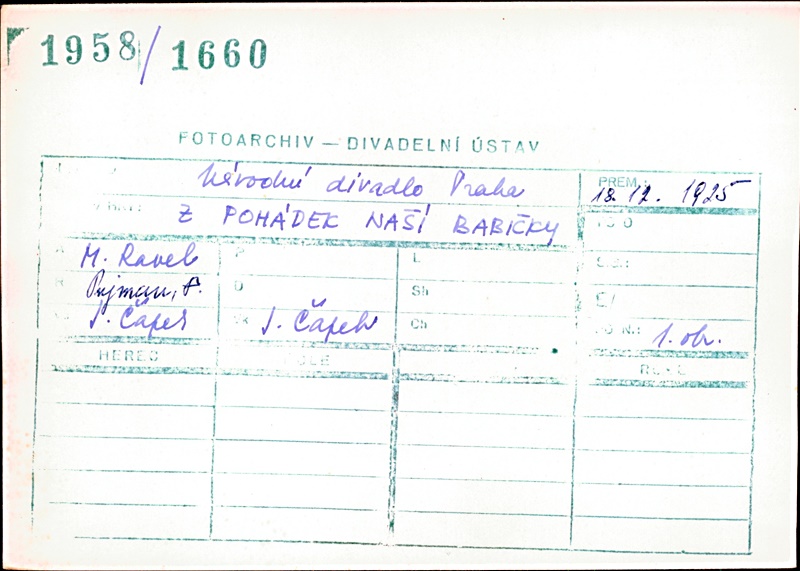 1958/1660
FOTOARCHIV — DIVADELNÍ ÚSTAV
Národní divadlo Praha
PREM.: 18. 12. 1925
Z POHÁDEK NAŠÍ BABIČKY
M. Ravel
P
L
Pujman, F.
D
Sb
J. Čapek
J. Čapek
Ch
1. obr.
HEREC